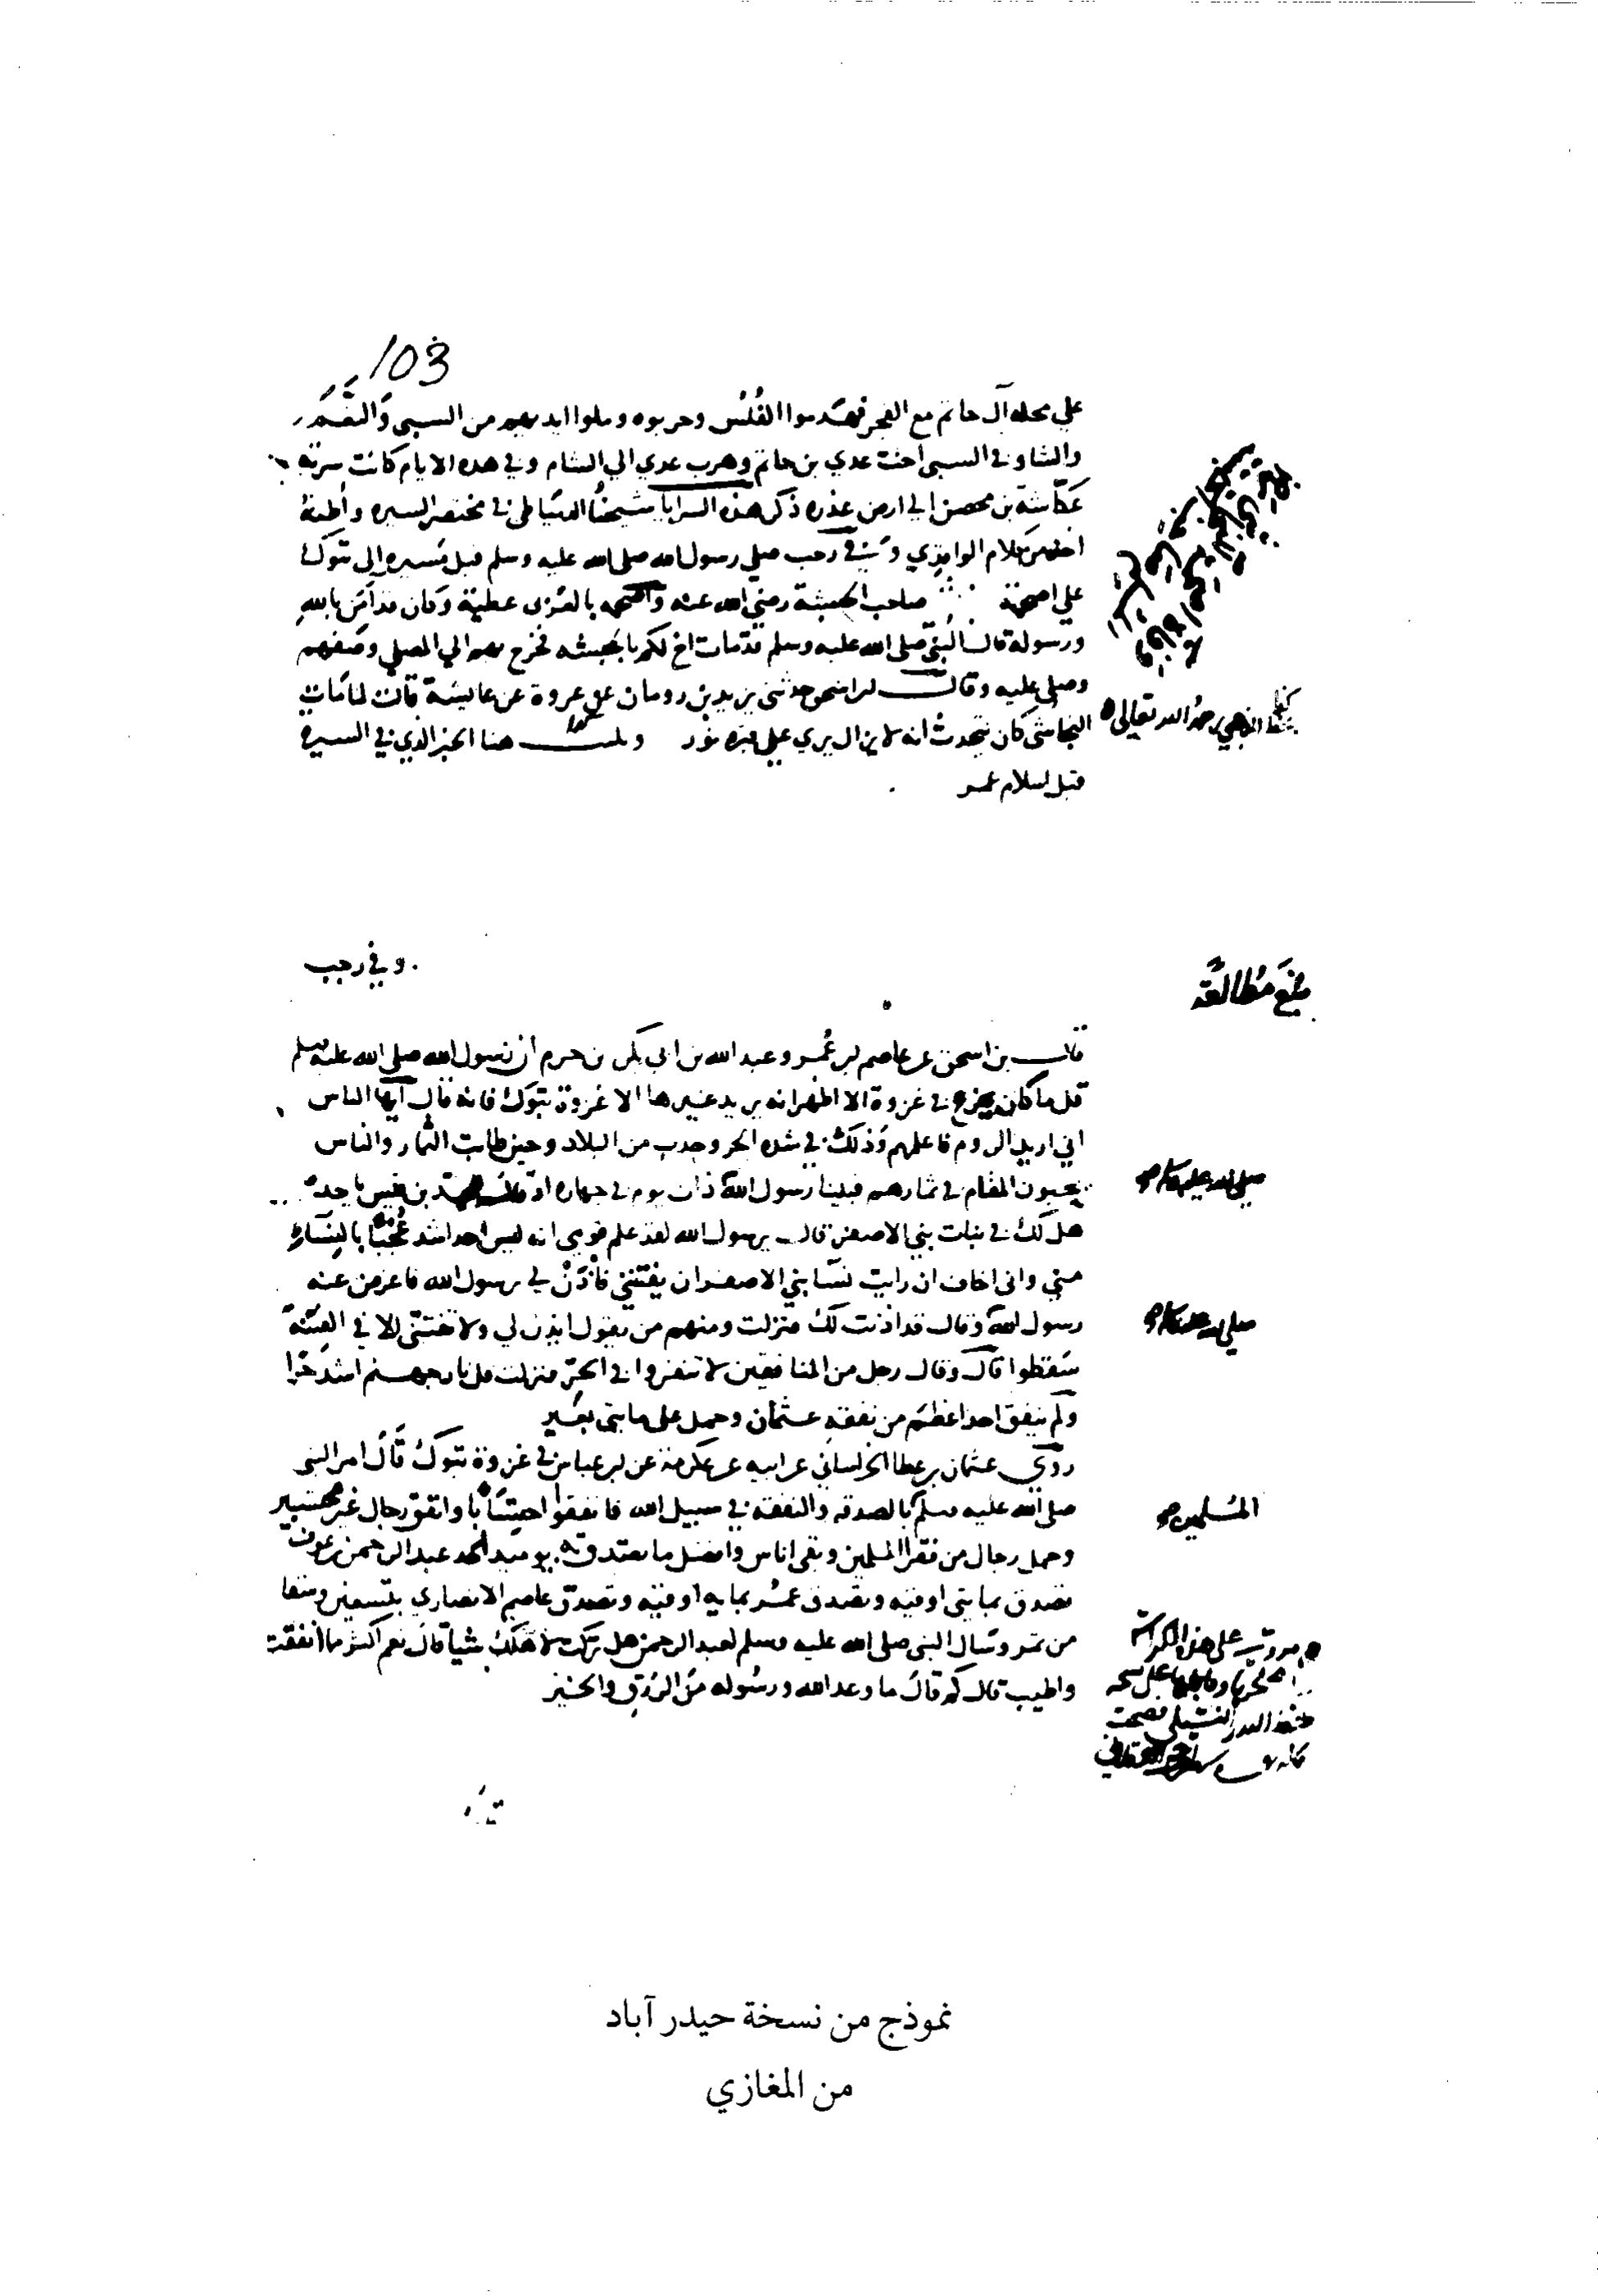 103
علي محله آل حاتم مع الفجر فهدموا الفُلُس وحربوه وملوا ايديهم من السبي والنعم
والشاء وفي السبي اخت عدي بن حاتم وهرب عدي الي الشام وفي هذه الايام كانت سرية
عكاشة بن محصن الي ارض عذره ذكر هذه السرايا شيخنا الدمياطي في مختصر السيره واظنه
اخذه من كلام الواقدي وفي رجب صلي رسول الله صلى الله عليه وسلم قبل مسيره إلى تبوك
علي اصحمة صاحب الحبشة رضي الله عنه واصحمه بالعربي عطية وكان قد آمن بالله
ورسوله قال النبي صلى الله عليه وسلم قد مات اخ لكم بالحبشه فخرج بهم الي المصلي وصفهم
وصلى عليه وقال ابن اسحق حدثني يزيد بن رومان عن عروة عن عايشة قالت لما مات
النجاشي كان يتحدث انه لا يزال يري علي قبره نور هنا الخبر الذي في السيرة
قبل اسلام عمر
بخط الذهبي رحمه الله تعالى
وفي رجب
بلغ مُطالعة
قال بن اسحق عن عاصم بن عُمر وعبد الله بن ابي بكر بن حزم أن رسول الله صلى الله عليه وسلم
قل ما كان يخرج في غزوة الا اظهر انه يريد غيرها الا غزوة تبوك فانه قال ايها الناس
اني اريد الروم فاعلمهم وذلك في شدة الحر وجدب من البلاد وحين طابت الثمار والناس
يحبون المقام في ثمارهم فبينا رسول الله ذات يوم في جهازه اذ قال للجد بن قيس يا جد
صلى الله عليه وسلم
هل لك في بنات بني الاصفر قال يرسول الله لقد علم قومي انه ليس احد اشد عُجْبًا بالنساء
مني واني اخاف ان رايت نسا بني الاصفر ان يفتنني فَأْذَنْ لي يرسول الله فاعرض عنه
رسول الله وقال قد اذنت لك فنزلت ومنهم من يقول ايذن لي ولا تفتني الا في الفتنة
صلى الله عليه وسلم
سقطوا قال وقال رجل من المنافقين لا تنفروا في الحر فنزلت قل نار جهنم اشد حرّا
ولم ينفق احد اعظم من نفقه عثمان وحمل على مايتي بعير
روي عثمان بن عطا الخراساني عن ابيه عن عكرمة عن ابن عباس في غزوة تبوك قال امر النبي
صلى الله عليه وسلم بالصدقه والنفقه في سبيل الله فانفقوا احتسَابا وانفق رجال غير محتسبين
المُسلمين
وحمل رجال من فقرا المسلمين وبقي اناس وافضل ما تصدق به يوميذ احد عبد الرحمن بن عوف
تصدق بمايتي اوقيه وتصدق عمُر بمايه اوقيه وتصدق عاصم الانصاري بتسعين وسقا
من تمر وقال النبي صلى الله عليه وسلم لعبد الرحمن هل تركت لاهلك شيا قال نعم اكثر مما انفقت
واطيب قال كم قال ما وعد الله ورسُوله من الرزق والخير
نموذج من نسخة حيدر آباد
من المغازي